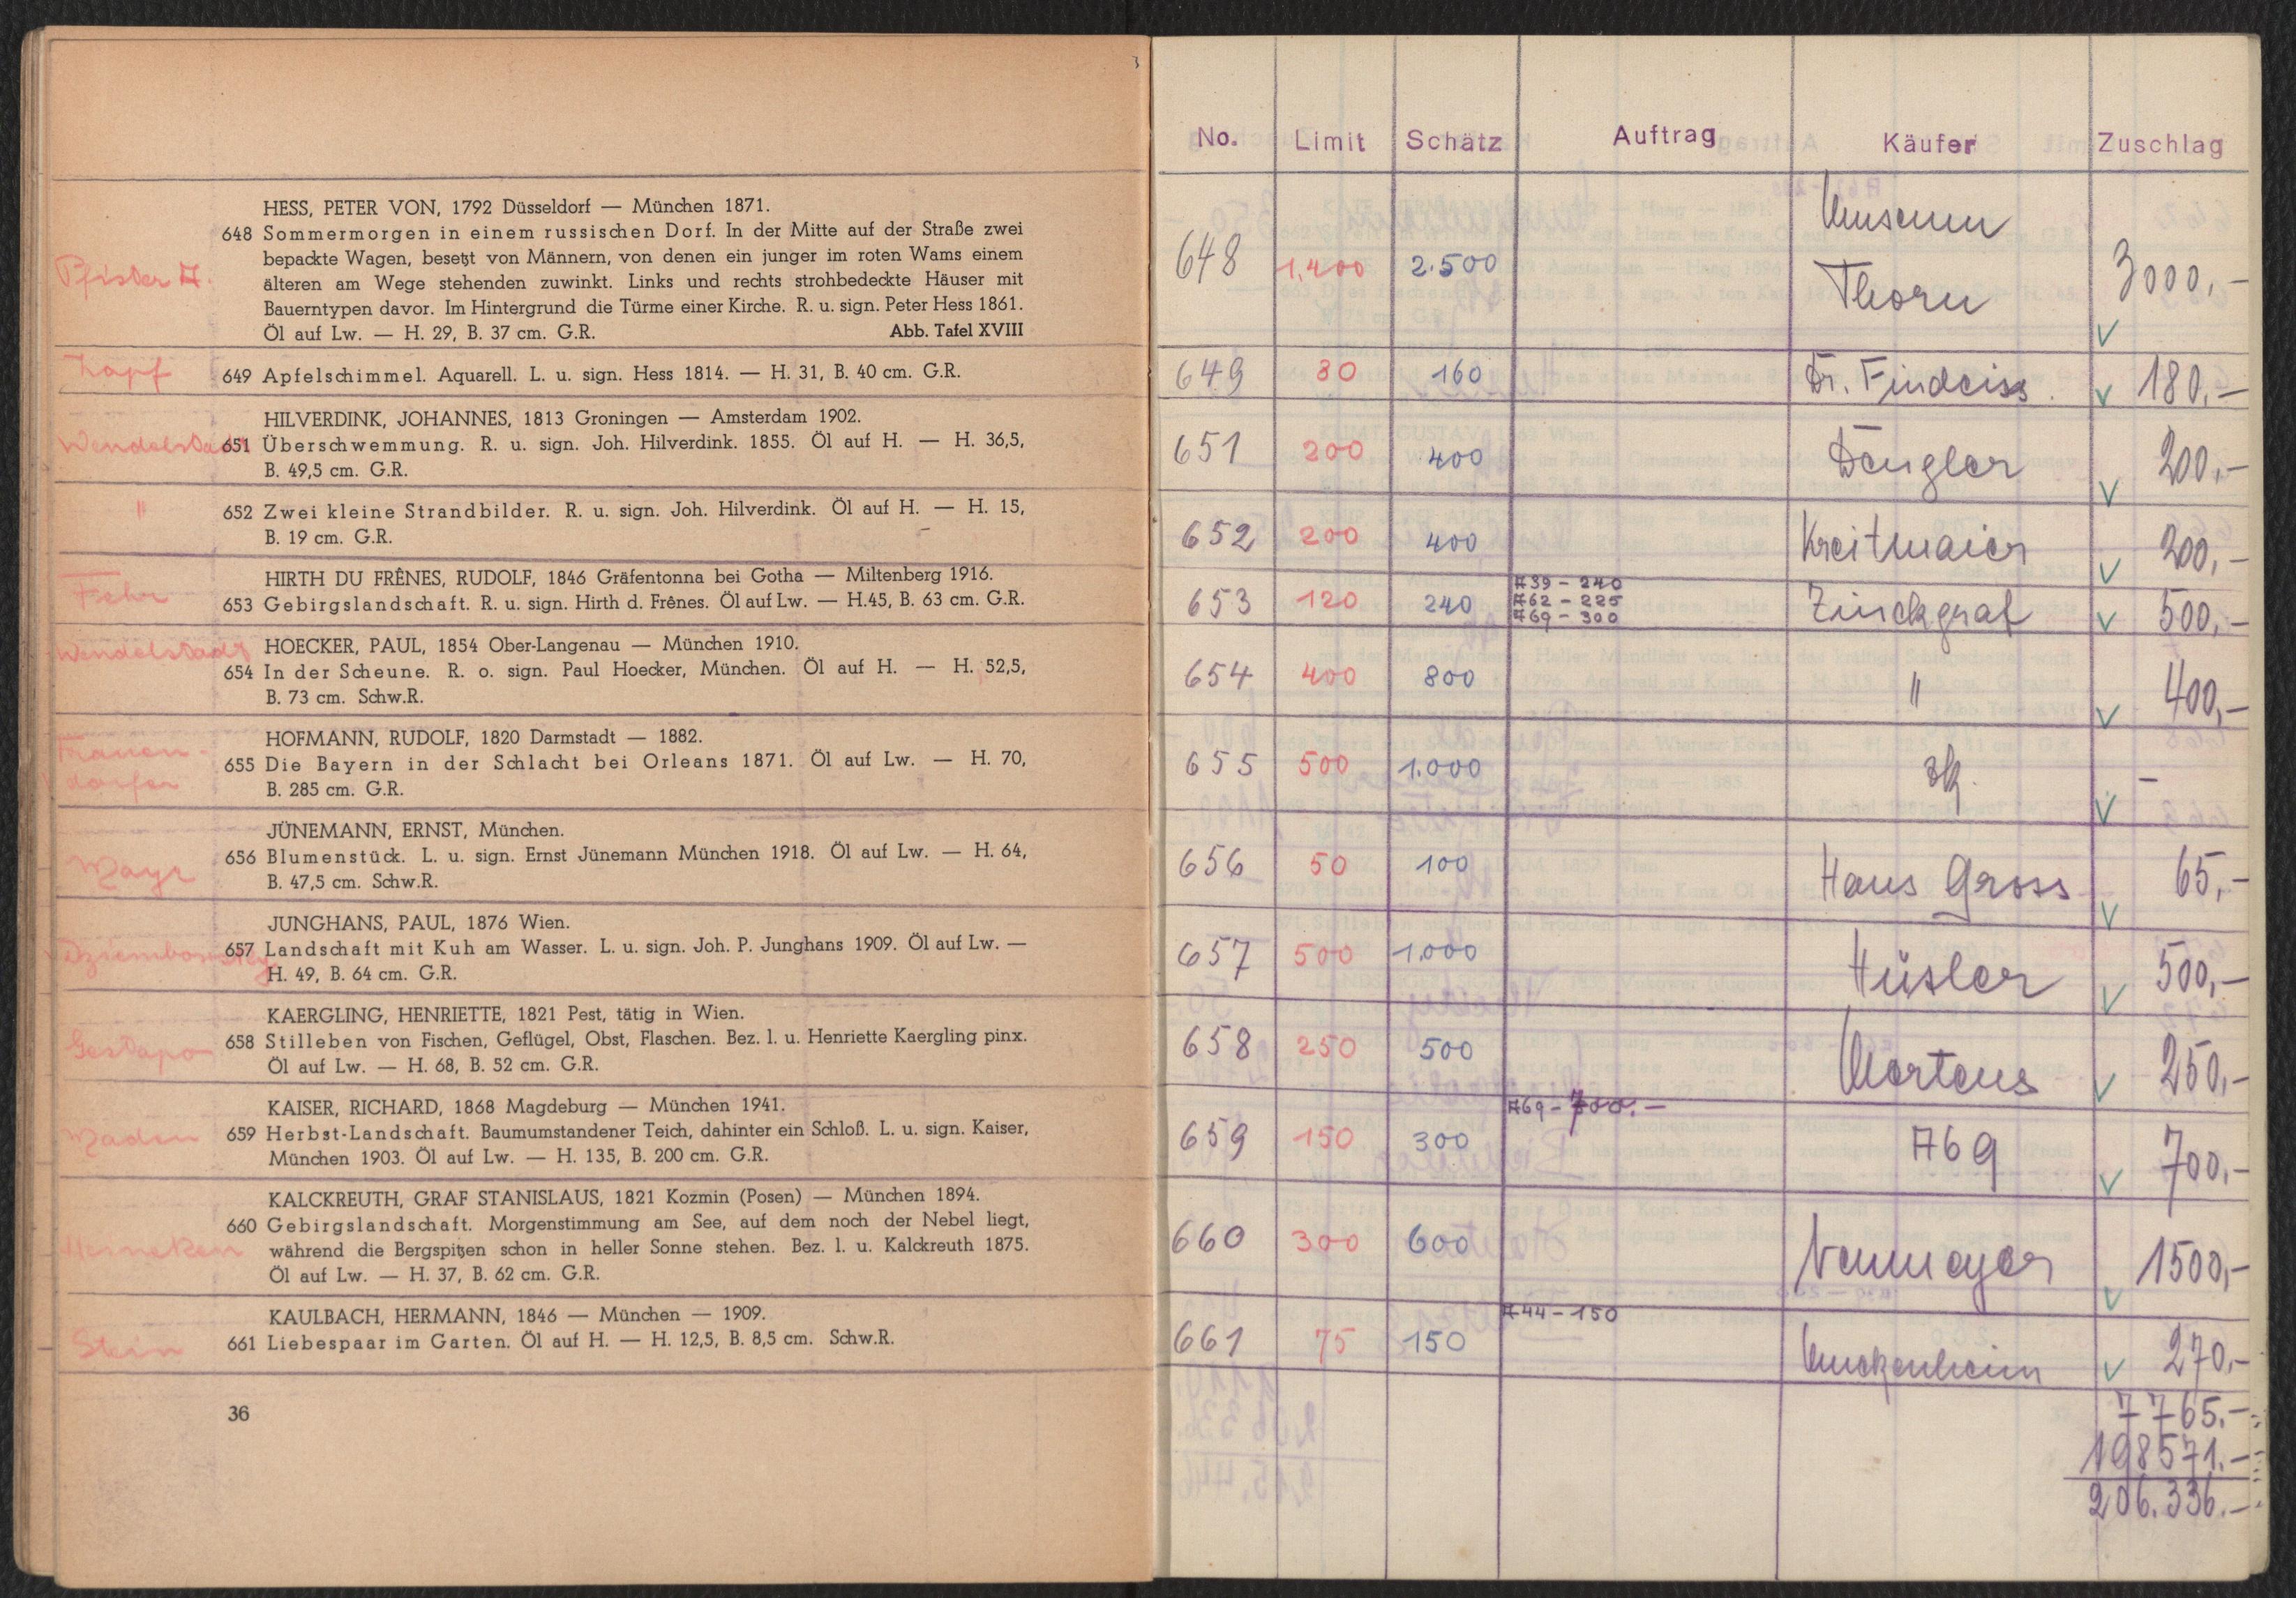 HESS, PETER VON, 1792 Düsseldorf — München 1871.
648 Sommermorgen in einem russischen Dorf. In der Mitte auf der Straße zwei
bepackte Wagen, besetzt von Männern, von denen ein junger im roten Wams einem
Pfister A.
älteren am Wege stehenden zuwinkt. Links und rechts strohbedeckte Häuser mit
Bauerntypen davor. Im Hintergrund die Türme einer Kirche. R. u. sign. Peter Hess 1861.
Öl auf Lw. — H. 29, B. 37 cm. G.R. Abb. Tafel XVIII
Zapf 649 Apfelschimmel. Aquarell. L. u. sign. Hess 1814. — H. 31, B. 40 cm. G.R.
HILVERDINK, JOHANNES, 1813 Groningen — Amsterdam 1902.
Wendelstadt 651 Überschwemmung. R. u. sign. Joh. Hilverdink. 1855. Öl auf H. — H. 36,5,
B. 49,5 cm. G.R.
" 652 Zwei kleine Strandbilder. R. u. sign. Joh. Hilverdink. Öl auf H. — H. 15,
B. 19 cm. G.R.
HIRTH DU FRÊNES, RUDOLF, 1846 Gräfentonna bei Gotha — Miltenberg 1916.
Fehr 653 Gebirgslandschaft. R. u. sign. Hirth d. Frênes. Öl auf Lw. — H.45, B. 63 cm. G.R.
Wendelstadt HOECKER, PAUL, 1854 Ober-Langenau — München 1910.
654 In der Scheune. R. o. sign. Paul Hoecker, München. Öl auf H. — H. 52,5,
B. 73 cm. Schw.R.
HOFMANN, RUDOLF, 1820 Darmstadt — 1882.
Frauen-
655 Die Bayern in der Schlacht bei Orleans 1871. Öl auf Lw. — H. 70,
dorfer
B. 285 cm. G.R.
JÜNEMANN, ERNST, München.
656 Blumenstück. L. u. sign. Ernst Jünemann München 1918. Öl auf Lw. — H. 64,
Mayr B. 47,5 cm. Schw.R.
JUNGHANS, PAUL, 1876 Wien.
Dziembowsky 657 Landschaft mit Kuh am Wasser. L. u. sign. Joh. P. Junghans 1909. Öl auf Lw. —
H. 49, B. 64 cm. G.R.
KAERGLING, HENRIETTE, 1821 Pest, tätig in Wien.
Gestapo 658 Stilleben von Fischen, Geflügel, Obst, Flaschen. Bez. l. u. Henriette Kaergling pinx.
Öl auf Lw. — H. 68, B. 52 cm. G.R.
KAISER, RICHARD, 1868 Magdeburg — München 1941.
659 Herbst-Landschaft. Baumumstandener Teich, dahinter ein Schloß. L. u. sign. Kaiser,
München 1903. Öl auf Lw. — H. 135, B. 200 cm. G.R.
KALCKREUTH, GRAF STANISLAUS, 1821 Kozmin (Posen) — München 1894.
660 Gebirgslandschaft. Morgenstimmung am See, auf dem noch der Nebel liegt,
während die Bergspitzen schon in heller Sonne stehen. Bez. l. u. Kalckreuth 1875.
Öl auf Lw. — H. 37, B. 62 cm. G.R.
KAULBACH, HERMANN, 1846 — München — 1909.
Stein 661 Liebespaar im Garten. Öl auf H. — H. 12,5, B. 8,5 cm. Schw.R.
36
No. Limit Schätz Auftrag Käufer Zuschlag
648 1.400 2.500 Museum
Thorn 3000,-
649 80 160 Dr. Findeiss. 180,-
651 200 400 Dengler 200,-
652 200 400 Kreitmaier 200,-
A39 - 240
653 120 240 A62 - 225 Zinckgraf 500,-
A69 - 300
654 400 800 " 400,-
655 500 1.000 zk. -
656 50 100 Hans Gross 65,-
657 500 1.000 Hüsler 500,-
658 250 500 Mertens 250,-
A69 - 700.-
659 150 300 A69 700,-
660 300 600 Neumayer 1500,-
A44 - 150
661 75 150 Muckenheim 270,-
7765.-
198571.-
206.336.-